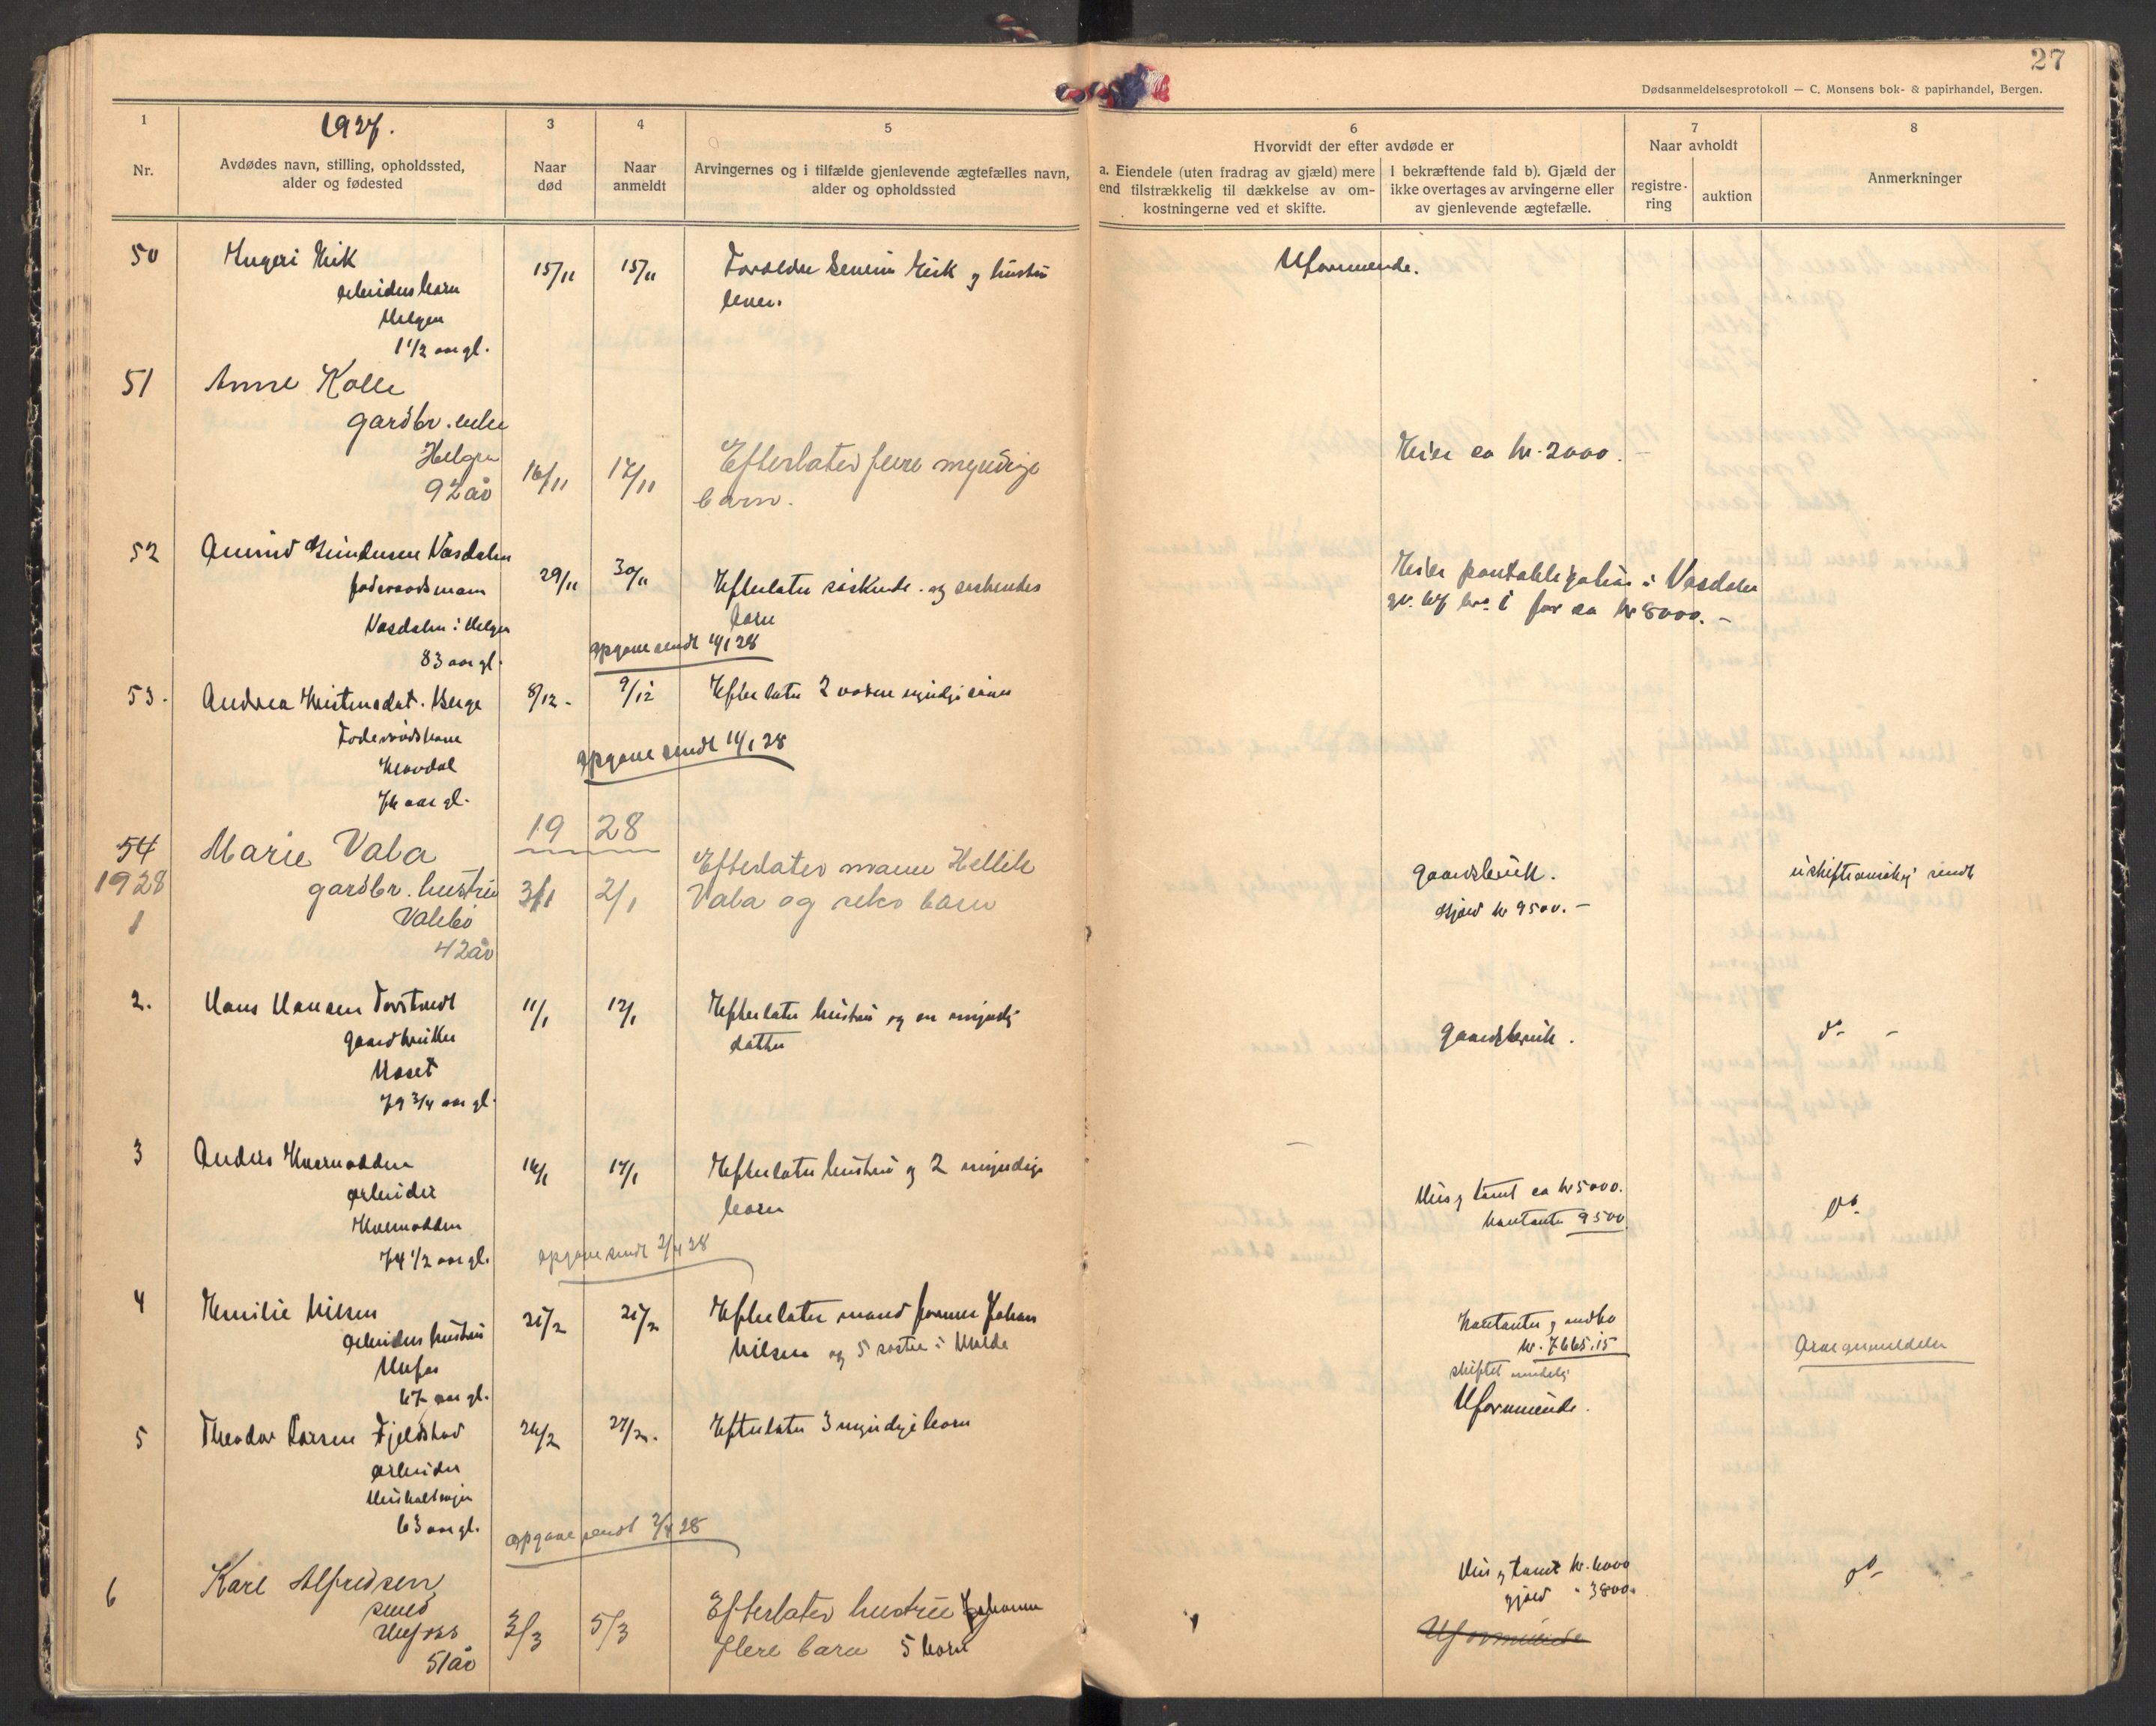 27
Dødsanmeldelsesprotokoll — C. Monsens bok- & papirhandel, Bergen.
1
1927.
3
4
5
6
7
8
Nr.
Avdødes navn, stilling, opholdssted,
alder og fødested
Naar
død
Naar
anmeldt
Arvingernes og i tilfælde gjenlevende ægtefælles navn,
alder og opholdssted
Hvorvidt der efter avdøde er
a. Eiendele (uten fradrag av gjæld) mere
end tilstrækkelig til dækkelse av om-
kostningerne ved et skifte.
I bekræftende fald b). Gjæld der
ikke overtages av arvingerne eller
av gjenlevende ægtefælle.
Naar avholdt
registre-
ring
auktion
Anmerkninger
50
15/11
15/11
Foreldre Severin Eik og hustru
lever.
Uformuende.
arbeiders barn
Helgen
1 1/2 aar gl.
51 Anne Kolle
gardbr. enke
Helgen
92 år
16/11
17/11
Efterlater flere myndige
barn.
Eier ca kr. 2000.-
52
Vasdalen
føderaadsmann
Vasdalen i Helgen
83 aar gl.
29/11
30/11
Efterlater søskende og søskendes
barn
Eier pantobligation i Vasdalen
for ca kr 8000.-
opgave sendt 14/1 28
53. Andrea Kristensdat. Berge
Føderaadskone
76 aar gl.
8/12.
9/12
Efterlater 2 voksne myndige
opgave sendt 14/1 28
19 28
54
1928
1
Marie Vala
gardbr. hustru
Valebø
42 år
3/1
2/1
Efterlater mann Hellik
Vala og seks barn
gaardsbruk.
Gjæld kr 9500.-
uskifteanmeld. sendt
2. Hans Hansen Tovstvedt
gaardbruker
79 3/4 aar gl.
11/1
12/1
Efterlater hustru og en myndig
datter
gaardsbruk.
do -
3 Anders Kvernodden
arbeider
Kvernodden
74 1/2 aar gl.
16/1
17/1
Efterlater hustru og 2 myndige
barn
Hus og tomt ca kr 5000.
kontanter 9500
do
opgave sendt 2/4 28
4 Emilie Nilsen
arbeiders hustru
Ulefos
67 aar gl.
25/2
25/2
Efterlater mand former Johan
Nilsen og 5 søstre i Molde
Kontanter og indbo
kr. 7665.15
skiftet mindelig
Arvegemeldelse
5 Theodor Larsen Fjeldstad
arbeider
63 aar gl.
26/2
27/2.
Efterlater 3 myndige barn
Uformuende.
opgave sendt 2/4 28
6 Karl Alfredsen
smed
Ulefoss
51 år
3/3
5/3
Efterlater hustru Johanne
flere barn 5 barn
Hus og tomt kr. 6000
gjæld " 3800.
Uformuende
do -